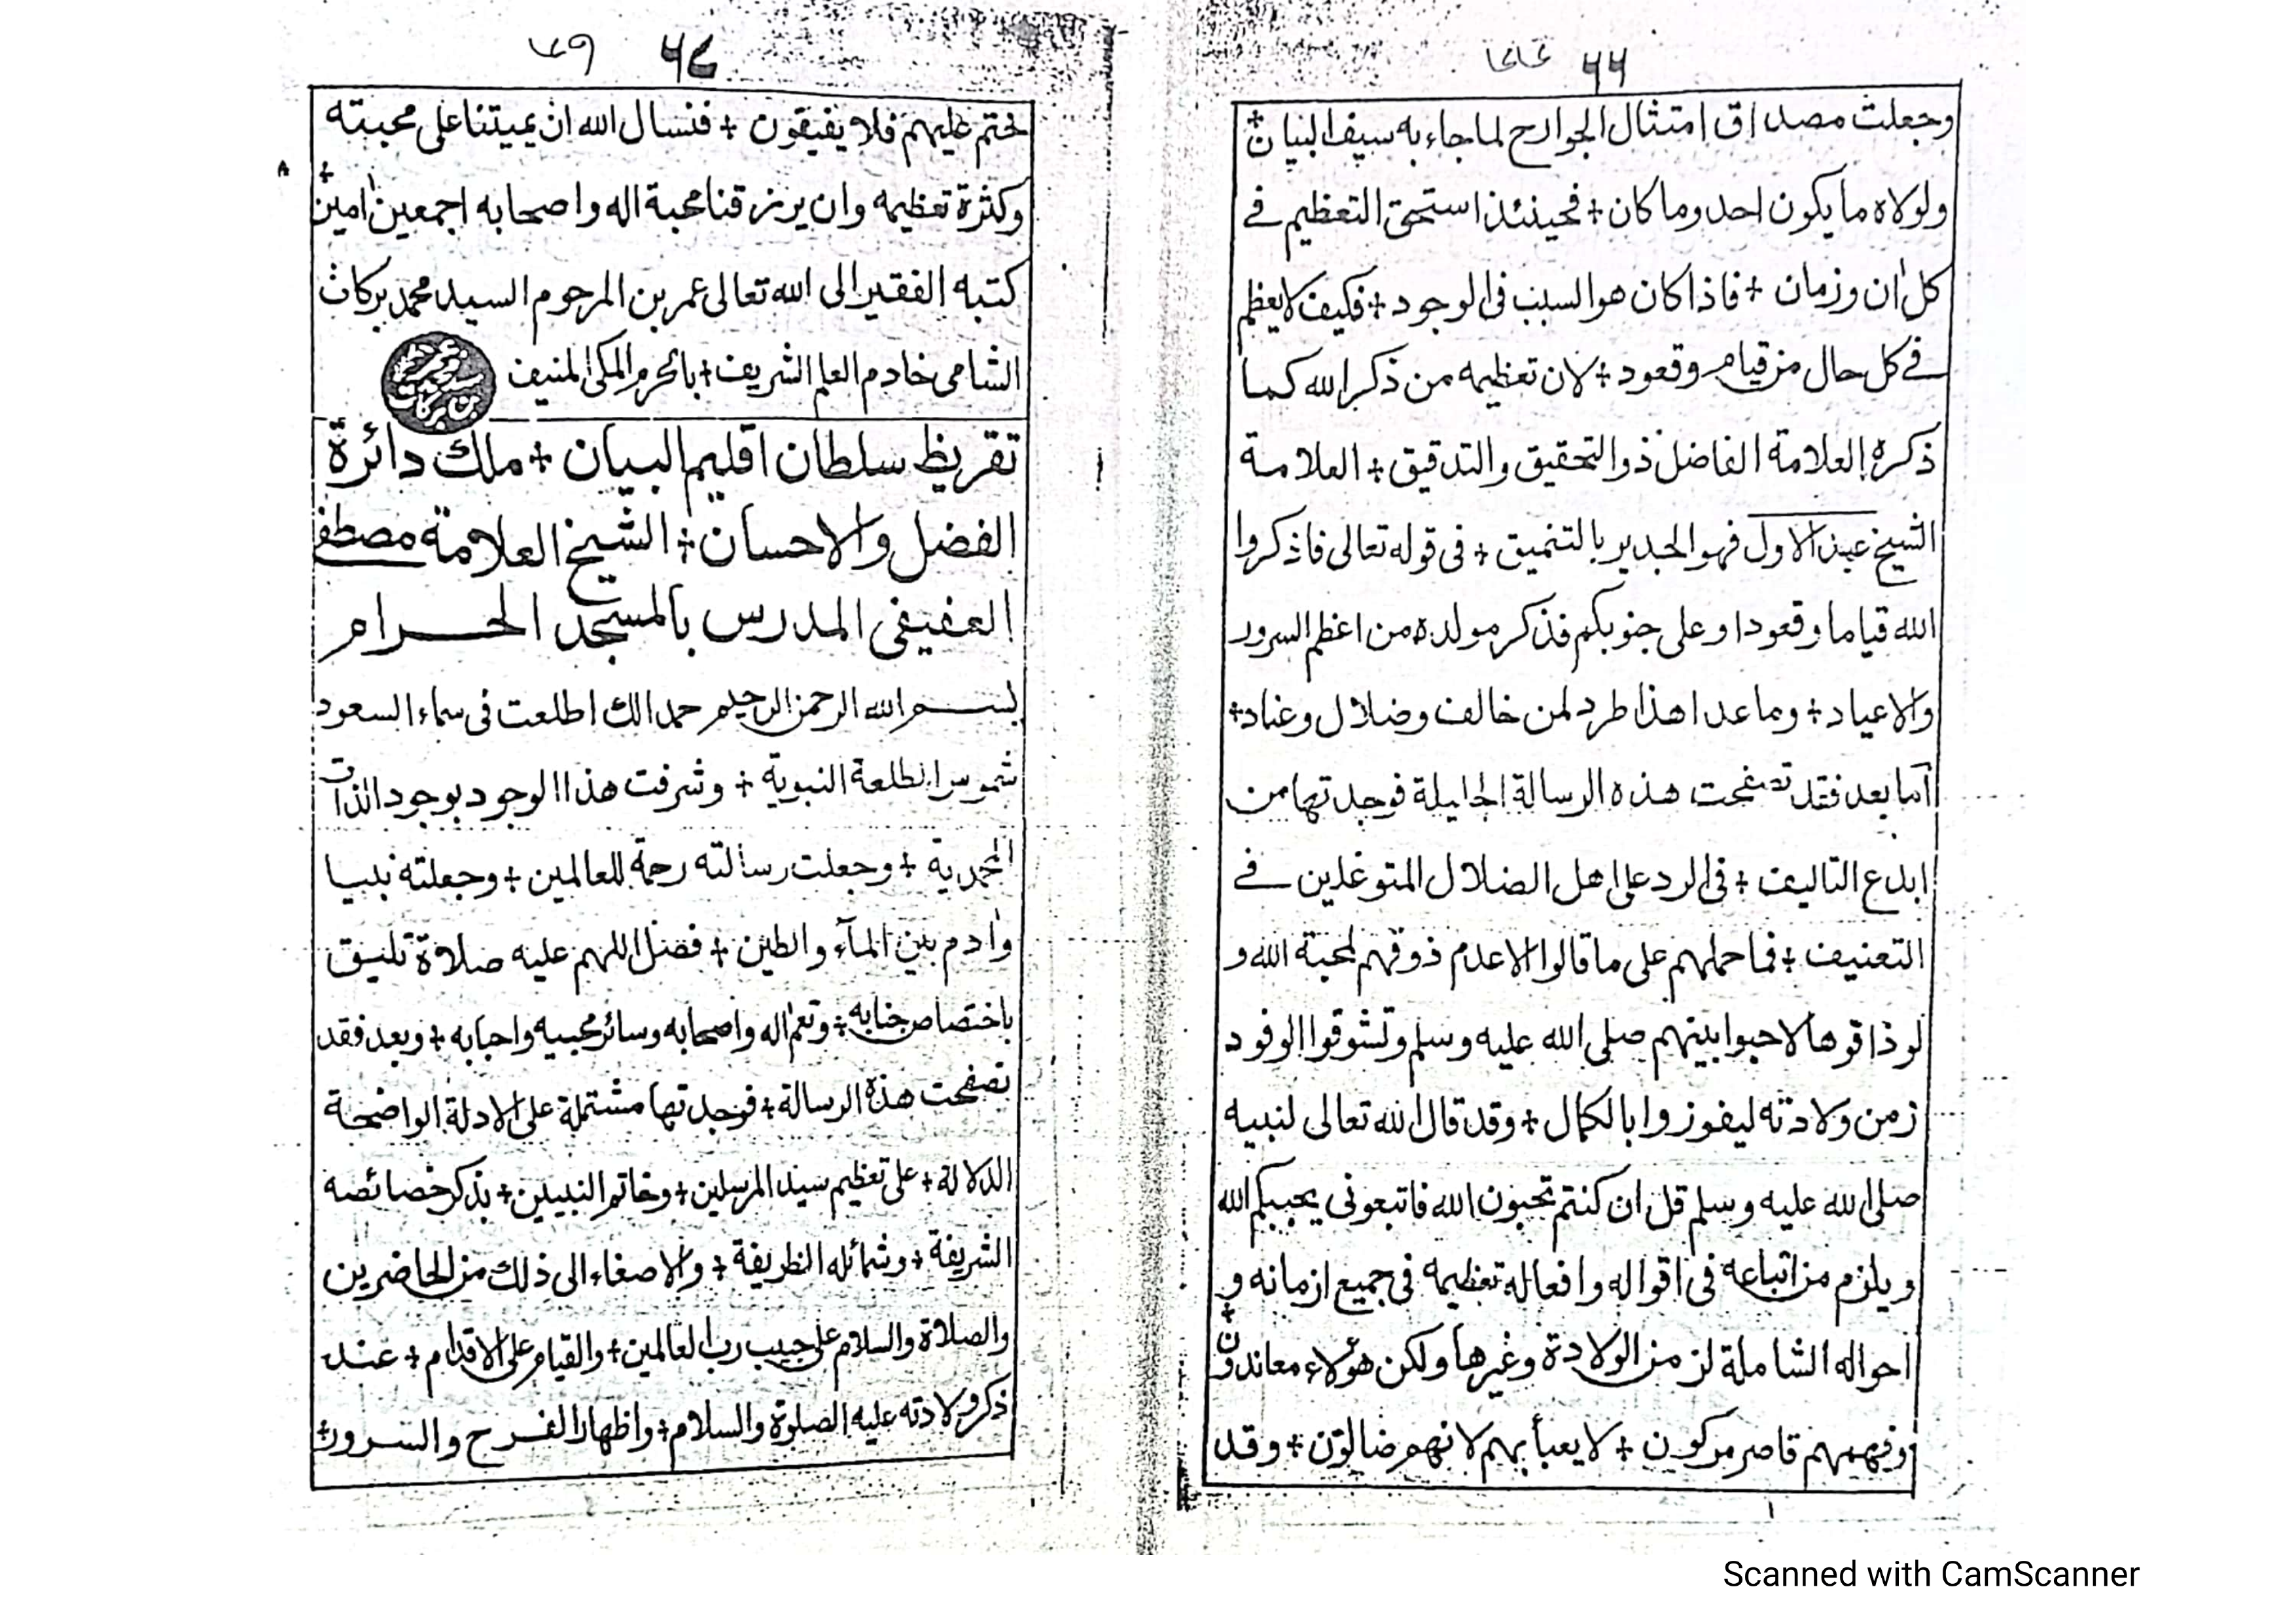 ٦٦
وجعلت مصداق امتثال الجوارح لما جاء به سيف البنيان
ولولاه ما يكون احد وما كان + فحينئذ استحق التعظيم في
كل اٰن وزمان + فاذا كان هو السبب فى الوجود + فكيف لا يعظم
في كل حال من قيام وقعود + لان تعظيمه من ذكر الله كما
ذكره العلامة الفاضل ذو التحقيق والتدقيق + العلامة
الشيخ عبد الاول فهو الجدير بالتنميق + فى قوله تعالى فاذكروا
الله قياما وقعودا وعلى جنوبكم فذكر مولده من اعظم السرور
والاعياد + وما عدا هذا طرد لمن خالف وضلال وعناد +
اما بعد فقد تصفحت هذه الرسالة الجليلة فوجدتها من
ابدع التاليف + فى الرد على اهل الضلال المتوغلين في
التعنيف + فما حملهم على ما قالوا الا عدم ذوقهم لمحبة الله و
لو ذاقوها لاحبوا بينهم صلى الله عليه وسلم وتشوقوا الوفود
زمن ولادته ليفوزوا بالكمال + وقد قال الله تعالى لنبيه
صلى الله عليه وسلم قل ان كنتم تحبون الله فاتبعونى يحببكم الله
ويلزم من اتباعه فى اقواله وافعاله تعظيمه فى جميع ازمانه و
احواله الشاملة لزمن الولادة وغيرها ولكن هؤلاء معاندون +
وفهمهم قاصر مركون + لا يعبأ بهم لانهم ضالون + وقد
٦٧
ختم عليهم فلا يفيقون + فنسال الله ان يميتنا على محبته
وكثرة تعظيمه وان يرزقنا محبة اله واصحابه اجمعين اٰمين +
كتبه الفقير الى الله تعالى عمر بن المرحوم السيد محمد بركات
الشامى خادم العلم الشريف + بالحرم المكى المنيف
تقريظ سلطان اقليم البيان + ملك دائرة
الفضل والاحسان + الشيخ العلامة مصطفى
العفيفى المدرس بالمسجد الحرام
بسم الله الرحمن الرحيم حمدا لك اطلعت فى سماء السعود
شموس الطلعة النبوية + وشرفت هذا الوجود بوجود الذات
المحمدية + وجعلت رسالته رحمة للعالمين + وجعلته نبيا
واٰدم بين المآء والطين + فصل اللهم عليه صلاة تليق
باختصاص جنابه + وتعم اٰله واصحابه وسائر محبيه واحبابه + وبعد فقد
تصفحت هذه الرسالة + فوجدتها مشتملة على الادلة الواضحة
الدلالة + على تعظيم سيد المرسلين + وخاتم النبيين + بذكر خصائصه
الشريفة + وشمائله الظريفة + والاصغاء الى ذلك من الحاضرين
والصلاة والسلام على حبيب رب العالمين + والقيام على الاقدام + عند
ذكر ولادته عليه الصلوة والسلام + واظهار الفرح والسرور +
Scanned with CamScanner